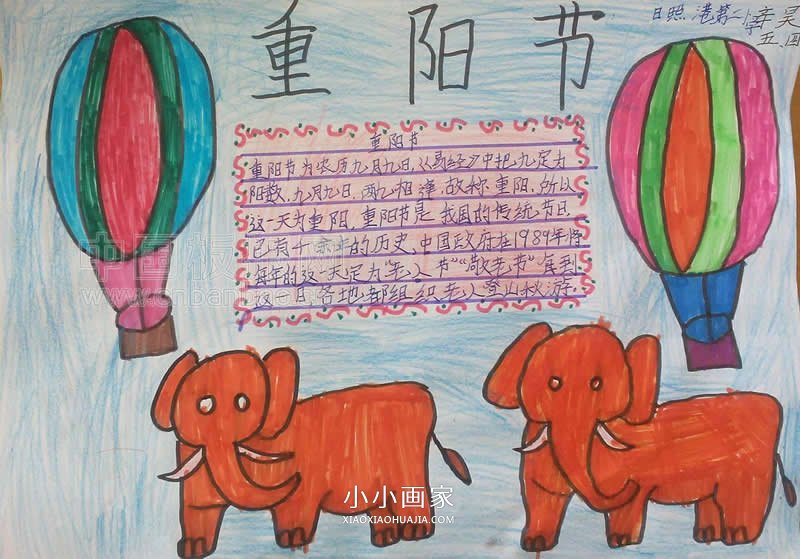 重阳节
日照港第二小学
五、四
重阳节
重阳节为农历九月九日，《易经》中把九定为
阳数，九月九日，两九相逢，故称重阳，所以
这一天为重阳，重阳节是我国的传统节日，
已有十余年的历史，中国政府在1989年将
每年的这一天定为“老人节”“敬老节”每到
这一日，各地都组织老人登山秋游.
小小画家
XIAOXIAOHUAJIA.COM